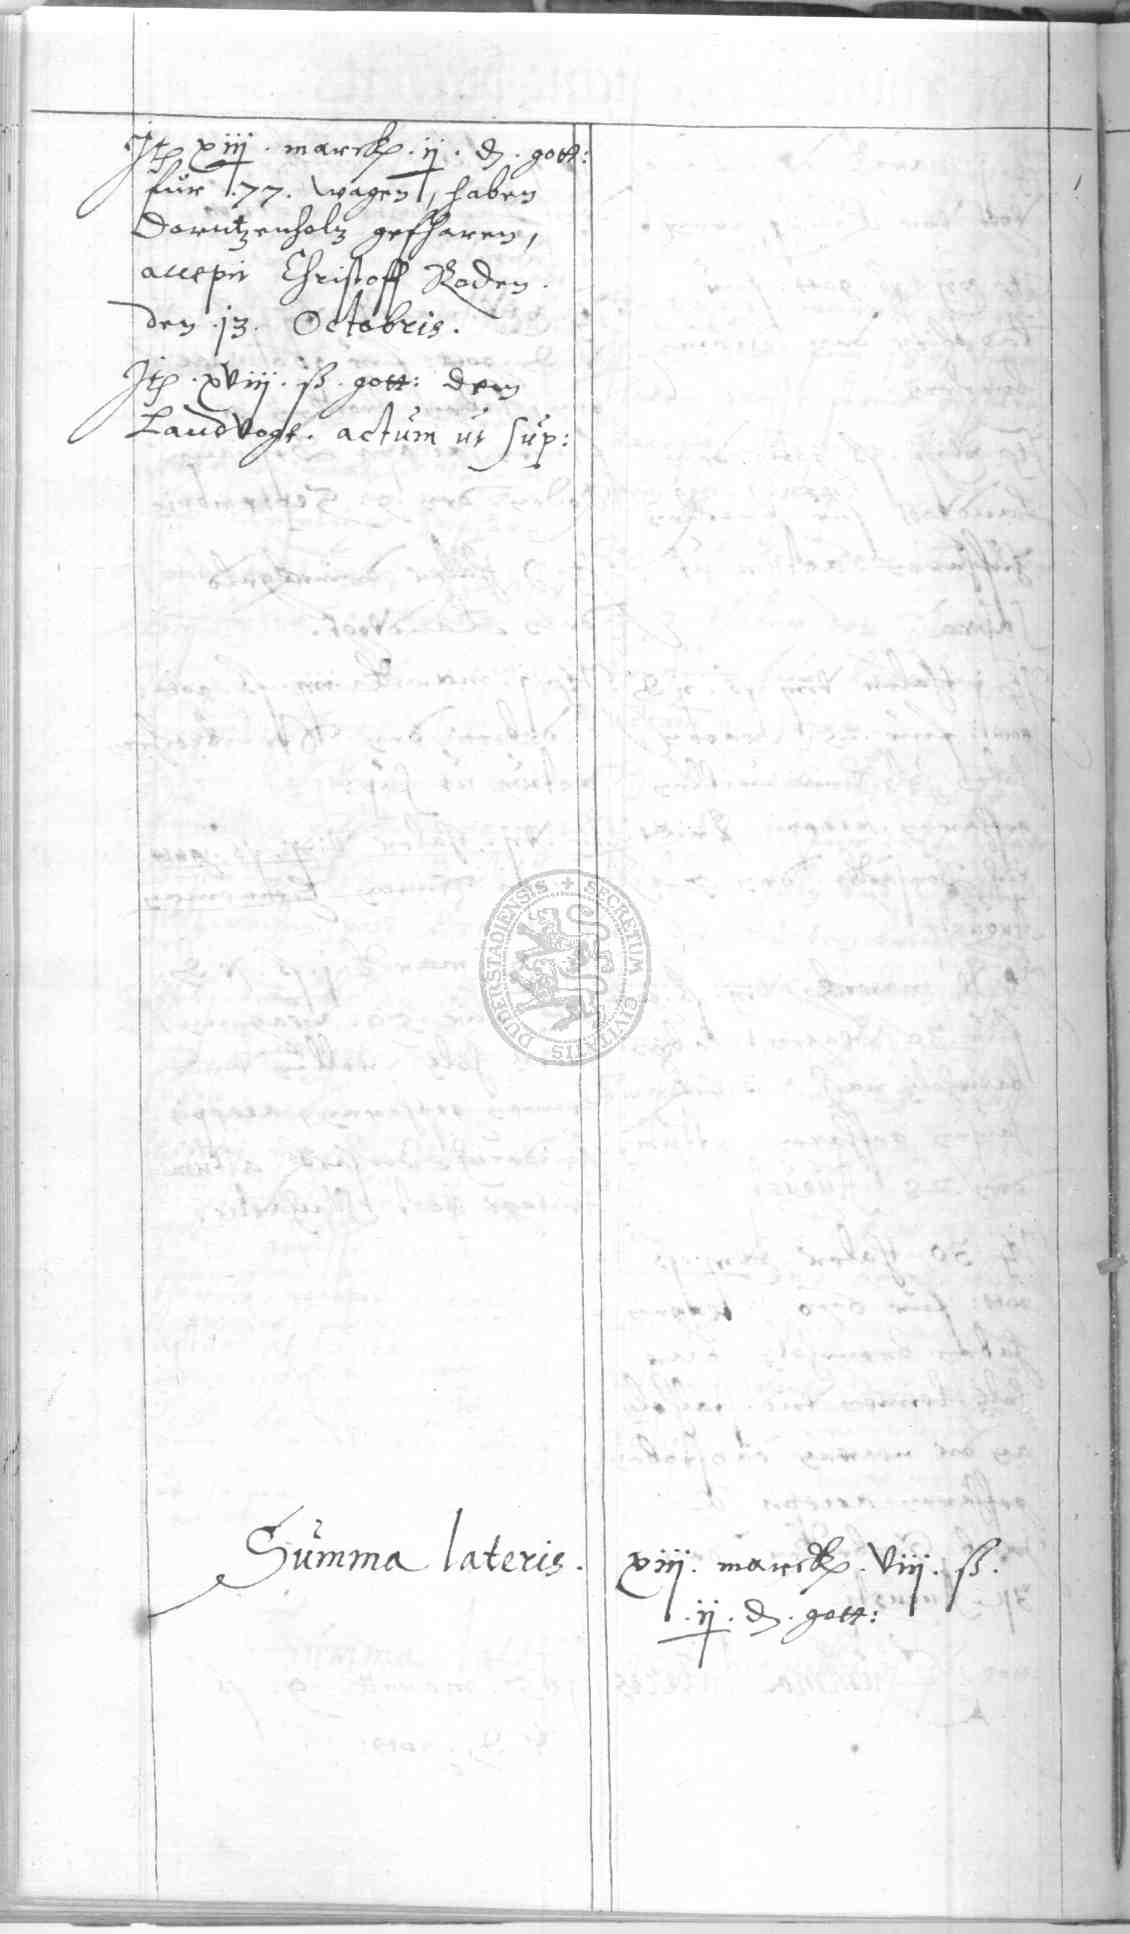 Itē xiij . marck . ij . ₰ . gott:
für .77. wagen, haben
Dorntzenholtz gefharen,
accepit Christoff Roden .
den .13. Octobris .
Itē . xviij . ß . gott: dem
Landvogt . actum ut sup:
SECRETUM CIVITATIS DUDERSTADIENSIS
Summa lateris . xiij . marck . viij . ß .
. ij . ₰ . gott: